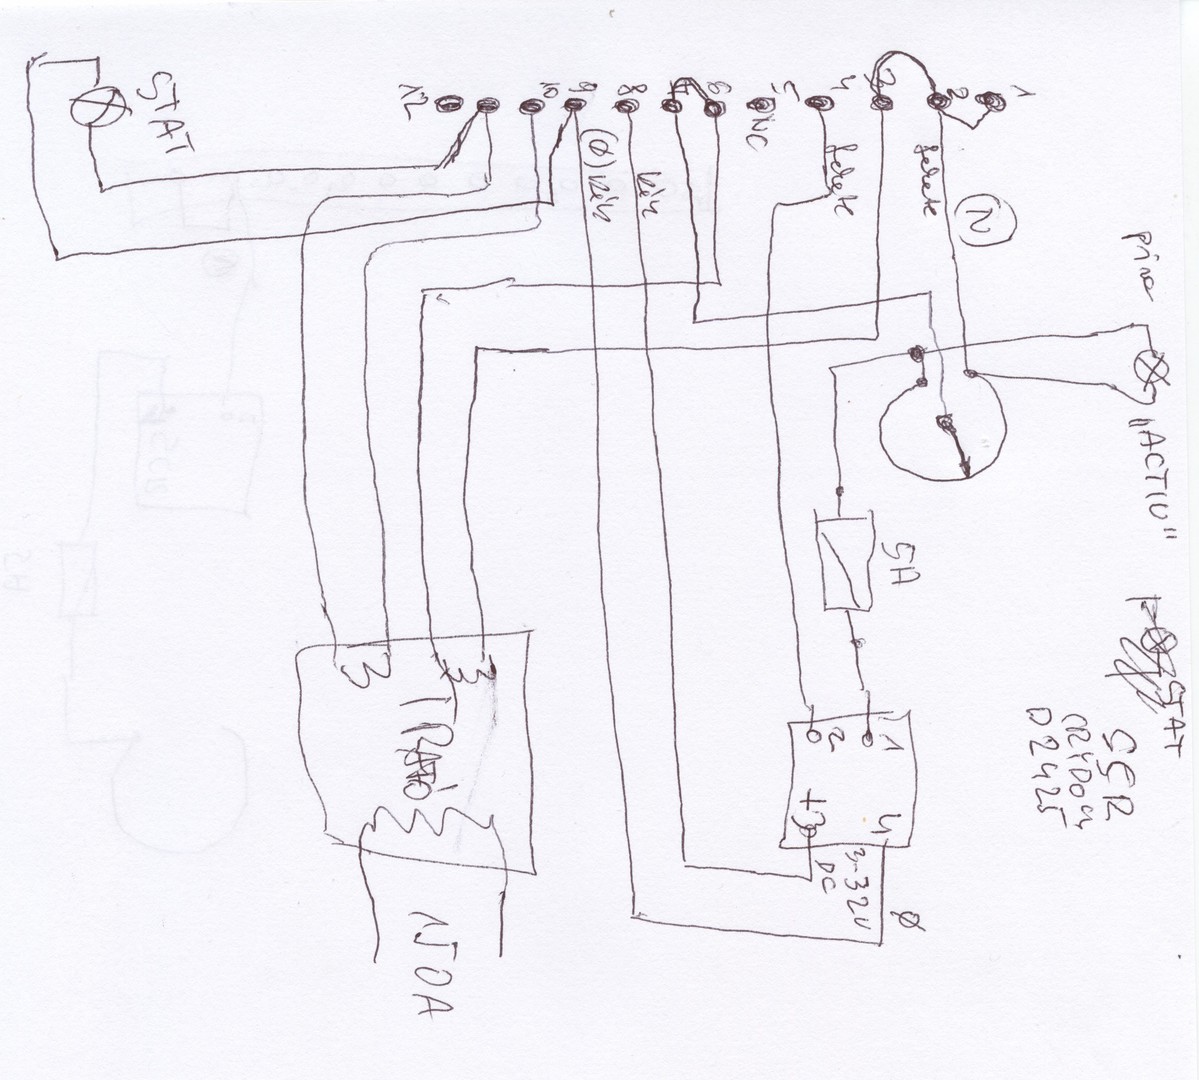 1
2
3
4
5
NC
6
7
8
9
10
12
STAT
fekete
fekete
N
kék
(0) kék
piros
"ACTIV"
5A
STAT
SSR
CRYDOM
D2425
1
2
+3
4
3-32V
DC
Ø
TRAFÓ
150A